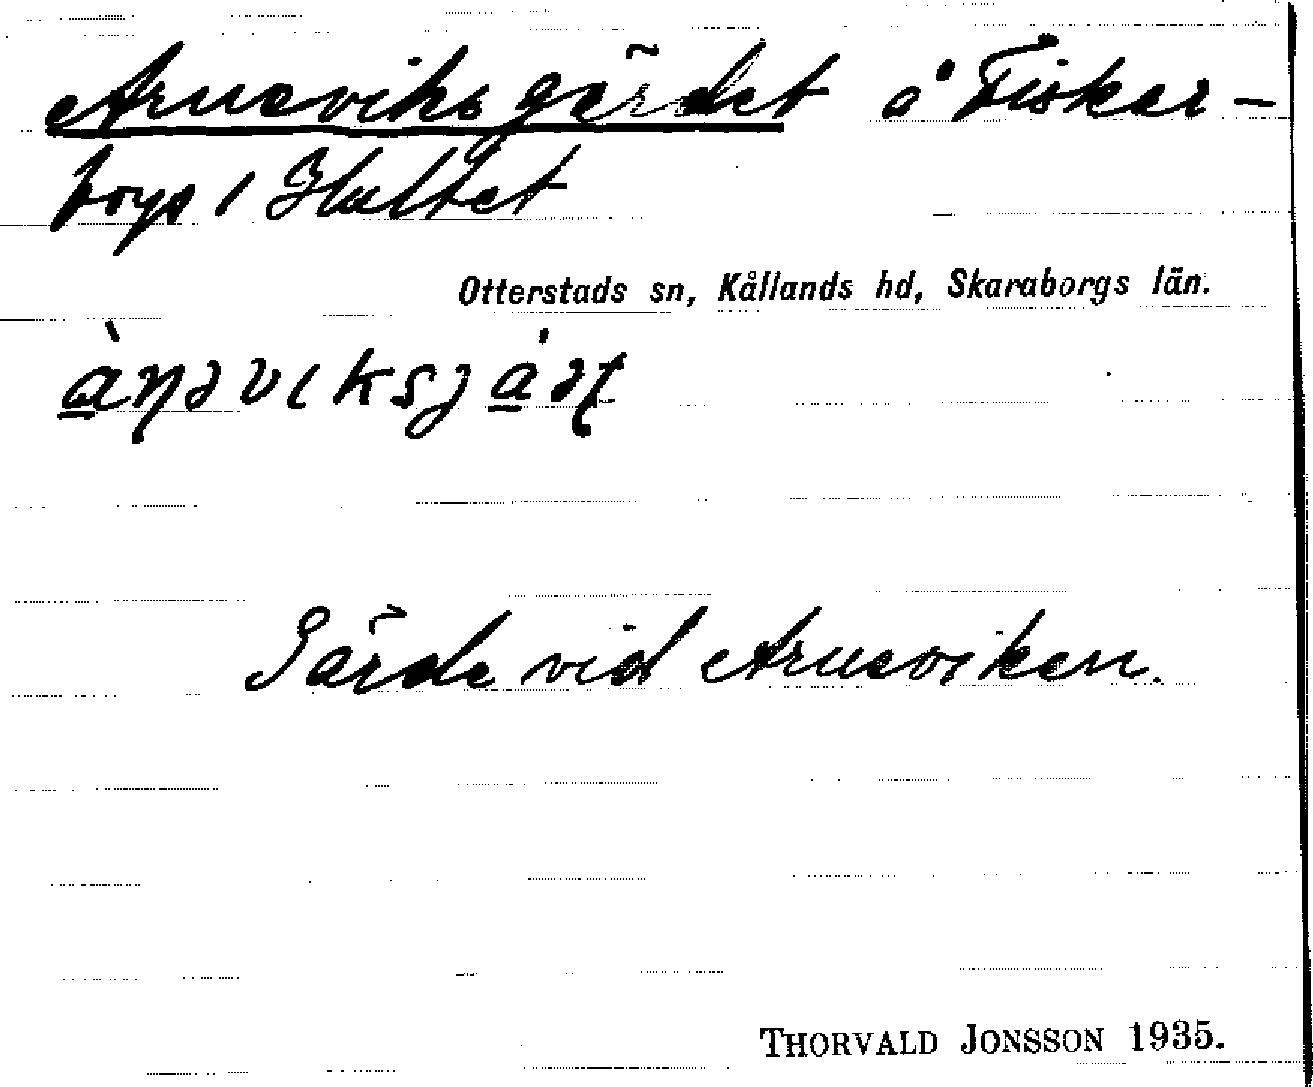 Arneviksgärdet å Fisker-
torps /
Otterstads sn, Kållands hd, Skaraborgs län.
Gärde vid Arneviken.
THORVALD JONSSON 1935.